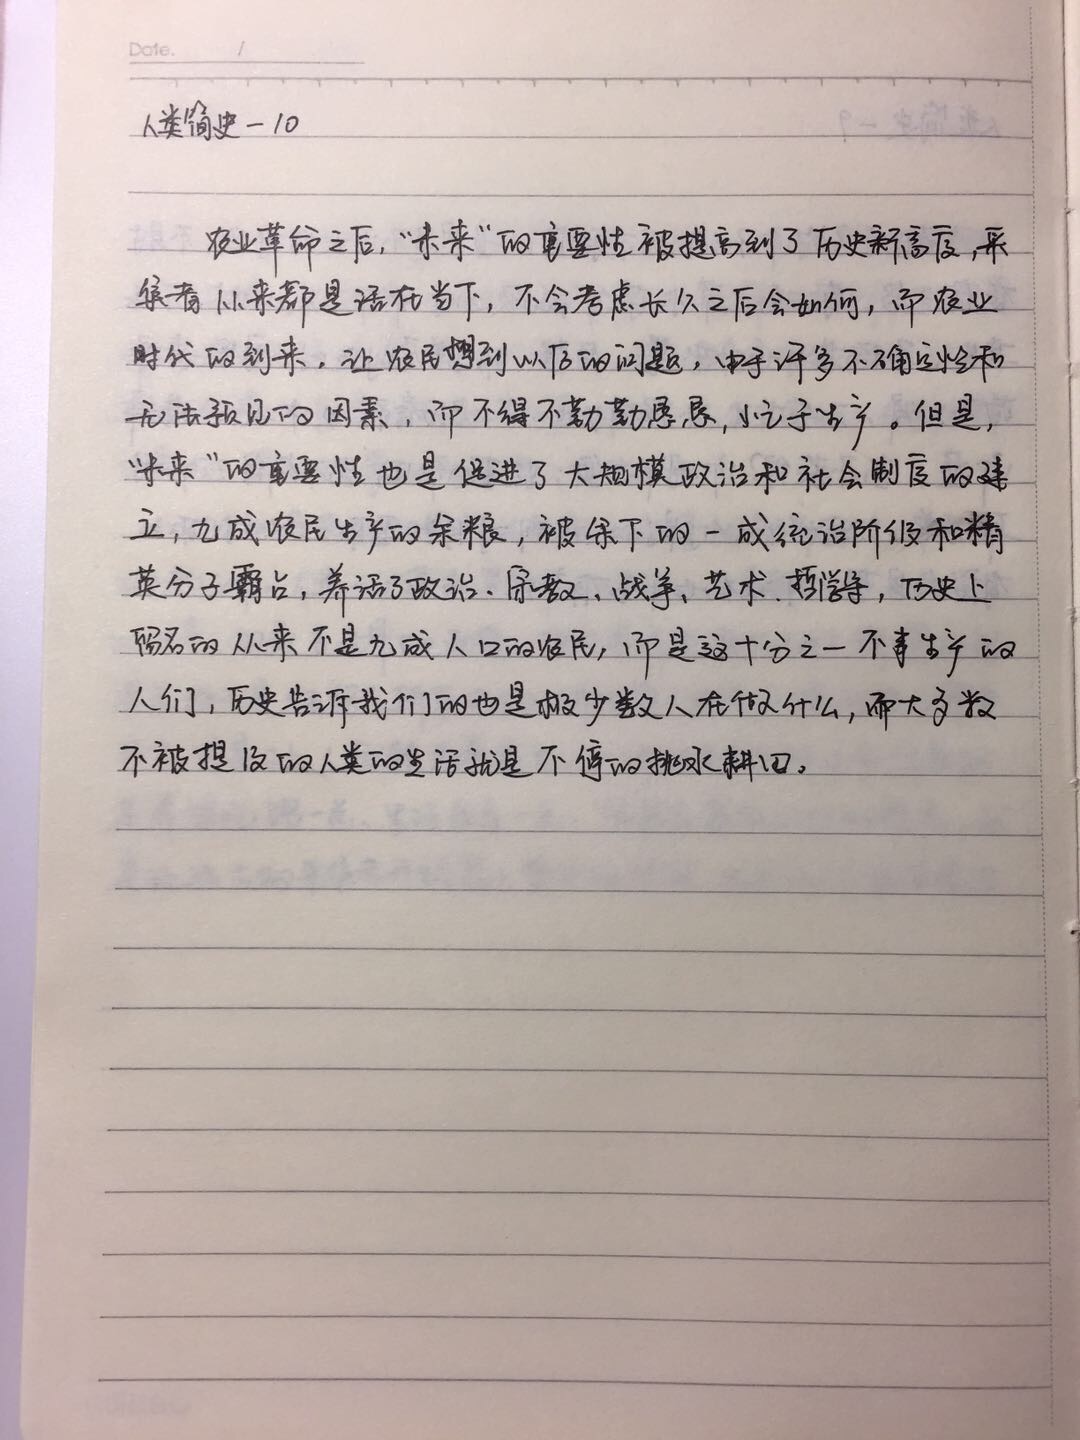 Date. /
人类简史-10
农业革命之后，“未来”的重要性被提高到了历史新高度，采
集者从来都是活在当下，不会考虑长久之后会如何，而农业
时代的到来，让农民想到以后的问题，由于许多不确定性和
无法预见的因素，而不得不勤勤恳恳，忙于生产。但是，
“未来”的重要性也是促进了大规模政治和社会制度的建
立，九成农民生产的余粮，被余下的一成统治阶级和精
英分子霸占，养活了政治、宗教、战争、艺术、哲学等，历史上
留名的从来不是九成人口的农民，而是这十分之一不事生产的
人们，历史告诉我们的也是极少数人在做什么，而大多数
不被提及的人类的生活就是不停的挑水耕田。